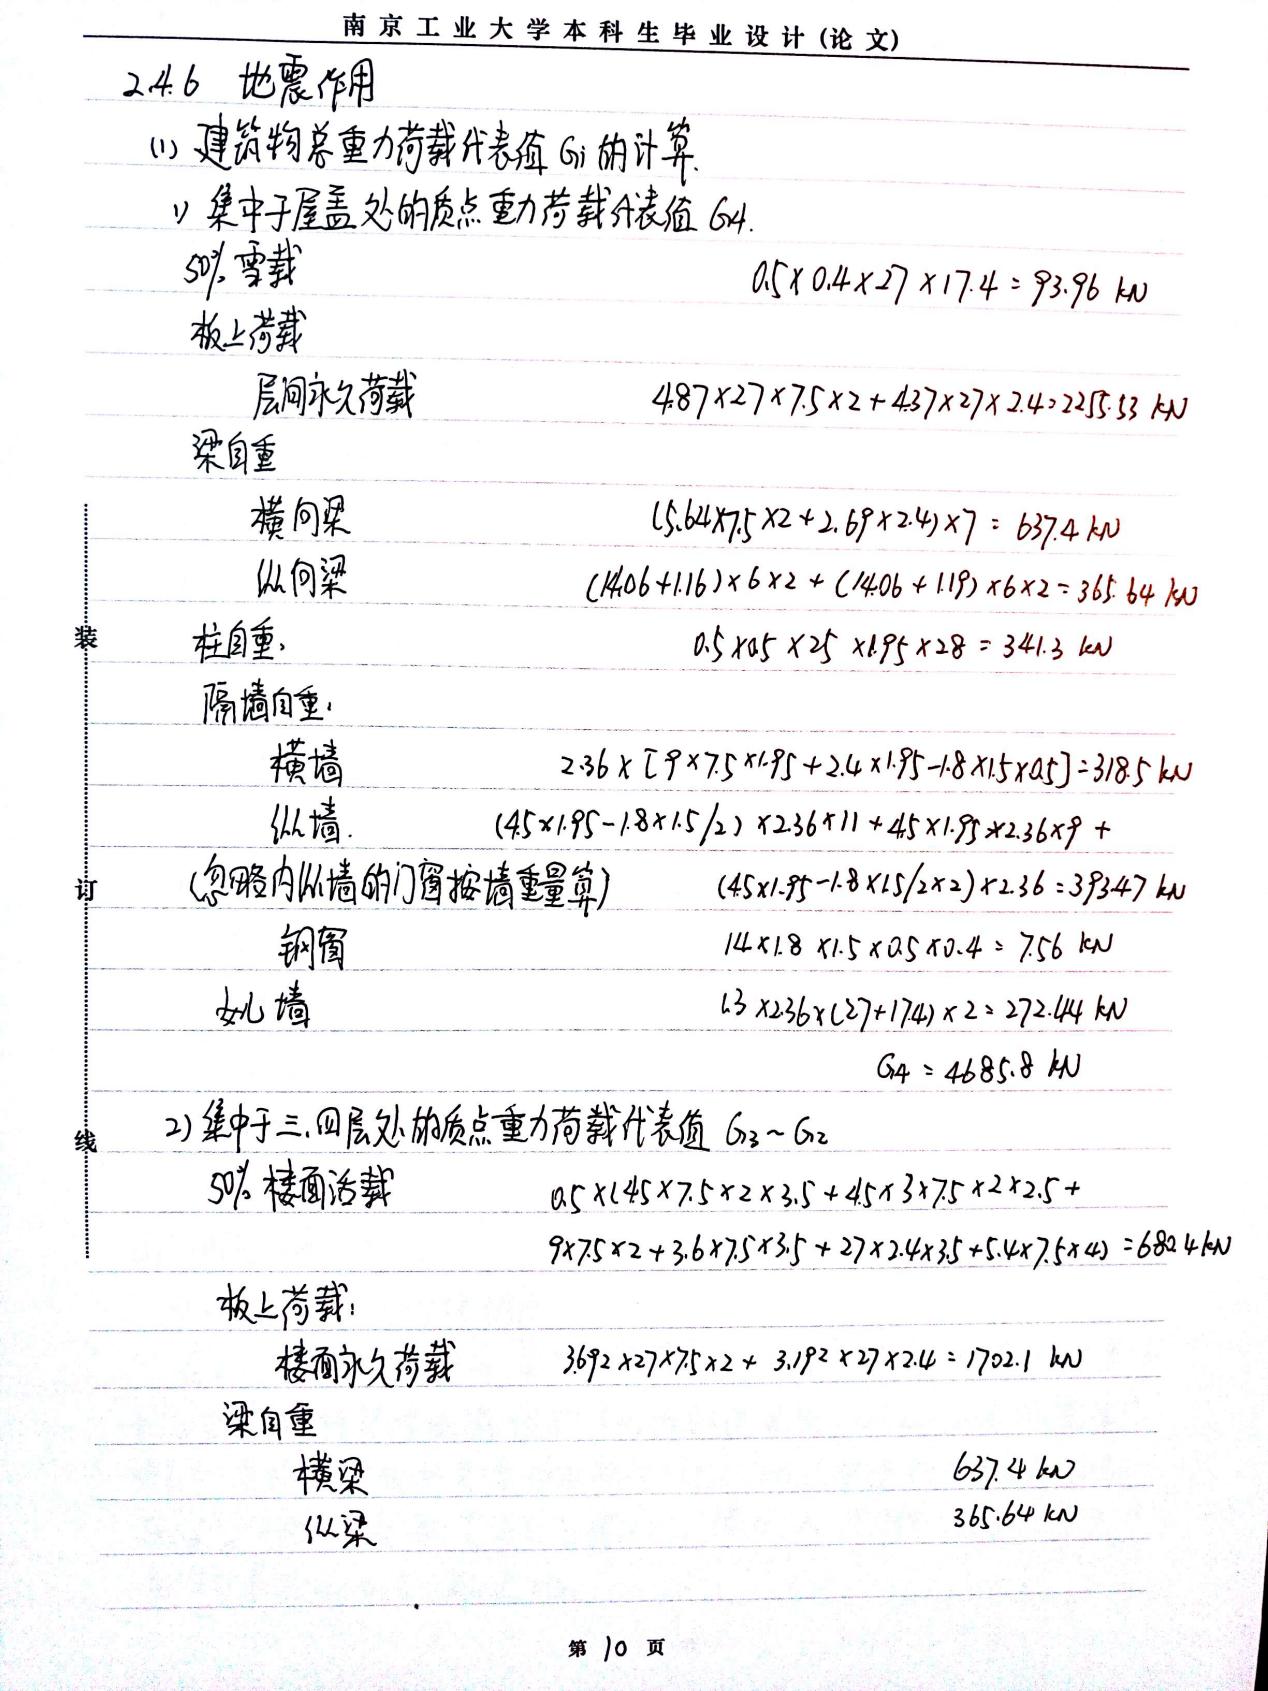 南京工业大学本科生毕业设计(论文)
2.4.6 地震作用
(1) 建筑物总重力荷载代表值 Gi 的计算.
1) 集中于屋盖处的质点重力荷载代表值 G4.
50%雪载 0.5×0.4×27×17.4=93.96 kN
板上荷载
层间永久荷载 4.87×27×7.5×2+4.37×27×2.4=2255.53 kN
梁自重
横向梁 (5.64×7.5×2+2.69×2.4)×7=637.4 kN
纵向梁 (14.06+1.16)×6×2+(14.06+1.19)×6×2=365.64 kN
柱自重: 0.5×0.5×25×1.95×28=341.3 kN
隔墙自重:
横墙 2.36×[9×7.5×1.95+2.4×1.95-1.8×1.5×0.5]=318.5 kN
纵墙. (4.5×1.95-1.8×1.5/2)×2.36×11+4.5×1.95×2.36×9+
(忽略内纵墙的门窗按墙重量算) (4.5×1.95-1.8×1.5/2×2)×2.36=393.47 kN
钢窗 14×1.8×1.5×0.5×0.4=7.56 kN
女儿墙 1.3×2.36×(27+17.4)×2=272.44 kN
G4=4685.8 kN
装
订
线
2) 集中于三.四层处的质点重力荷载代表值 G3~G2
50%楼面活载 0.5×(4.5×7.5×2×3.5+4.5×3×7.5×2×2.5+
9×7.5×2+3.6×7.5×3.5+27×2.4×3.5+5.4×7.5×4)=680.4 kN
板上荷载:
楼面永久荷载 3.692×27×7.5×2+3.192×27×2.4=1702.1 kN
梁自重
横梁 637.4 kN
纵梁 365.64 kN
第 10 页